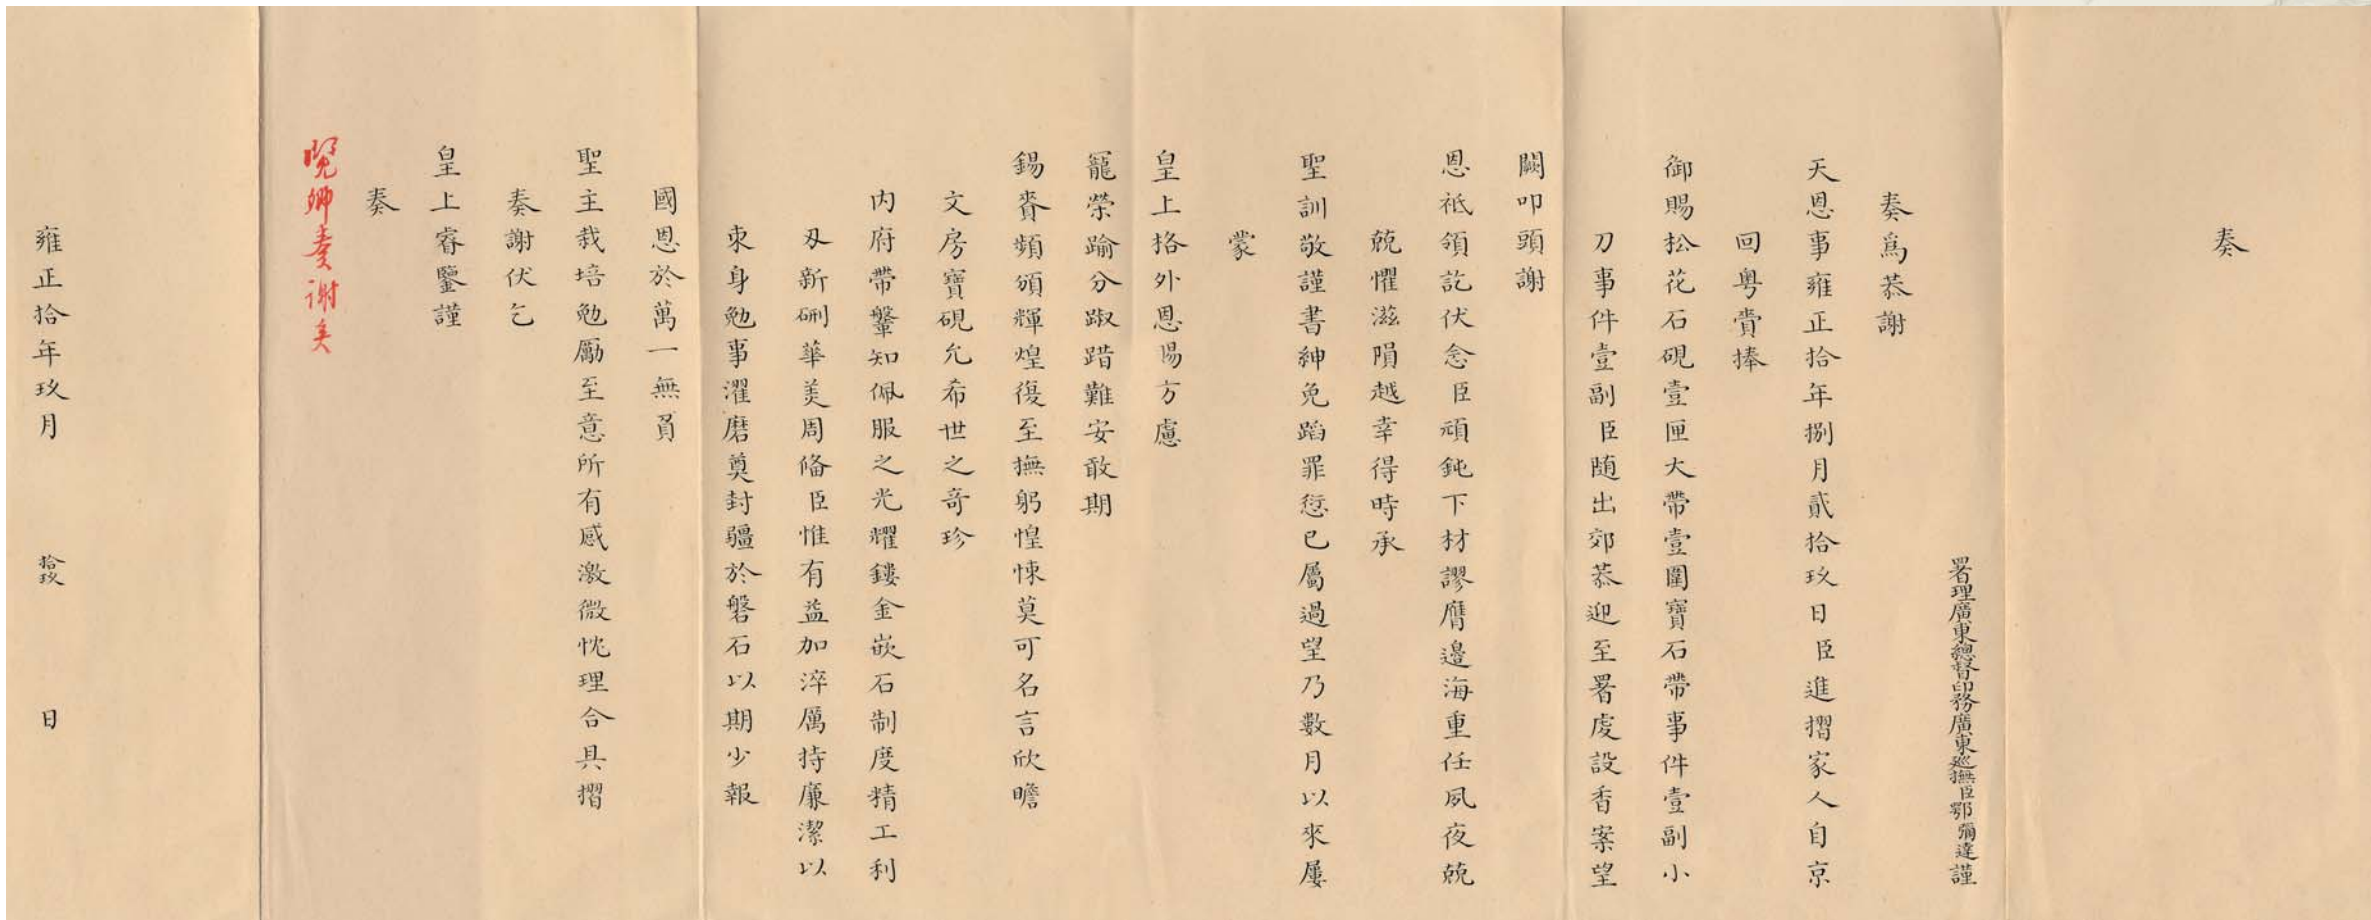 奏
署理廣東總督印務廣東巡撫臣鄂彌達謹
奏爲恭謝
天恩事雍正拾年捌月貳拾玖日臣進摺家人自京
回粤賫捧
御賜松花石硯壹匣大帶壹圍寶石帶事件壹副小
刀事件壹副臣随出郊恭迎至署處設香案望
闕叩頭謝
恩祗領訖伏念臣頑鈍下材謬膺邊海重任夙夜兢
兢懼滋隕越幸得時承
聖訓敬謹書紳免蹈罪愆已屬過望乃數月以來屢
蒙
皇上格外恩賜方慮
寵榮踰分踧踖難安敢期
錫賚頻頒輝煌復至撫躬惶悚莫可名言欣瞻
文房寶硯允希世之奇珍
内府帶鞶知佩服之光耀鏤金嵌石制度精工利
刄新硎華美周俻臣惟有益加淬厲持廉潔以
束身勉事濯磨奠封疆於磐石以期少報
國恩於萬一無負
聖主栽培勉勵至意所有感激微忱理合具摺
奏謝伏乞
皇上睿鑒謹
奏
覽卿奏謝矣
雍正拾年玖月拾玖日